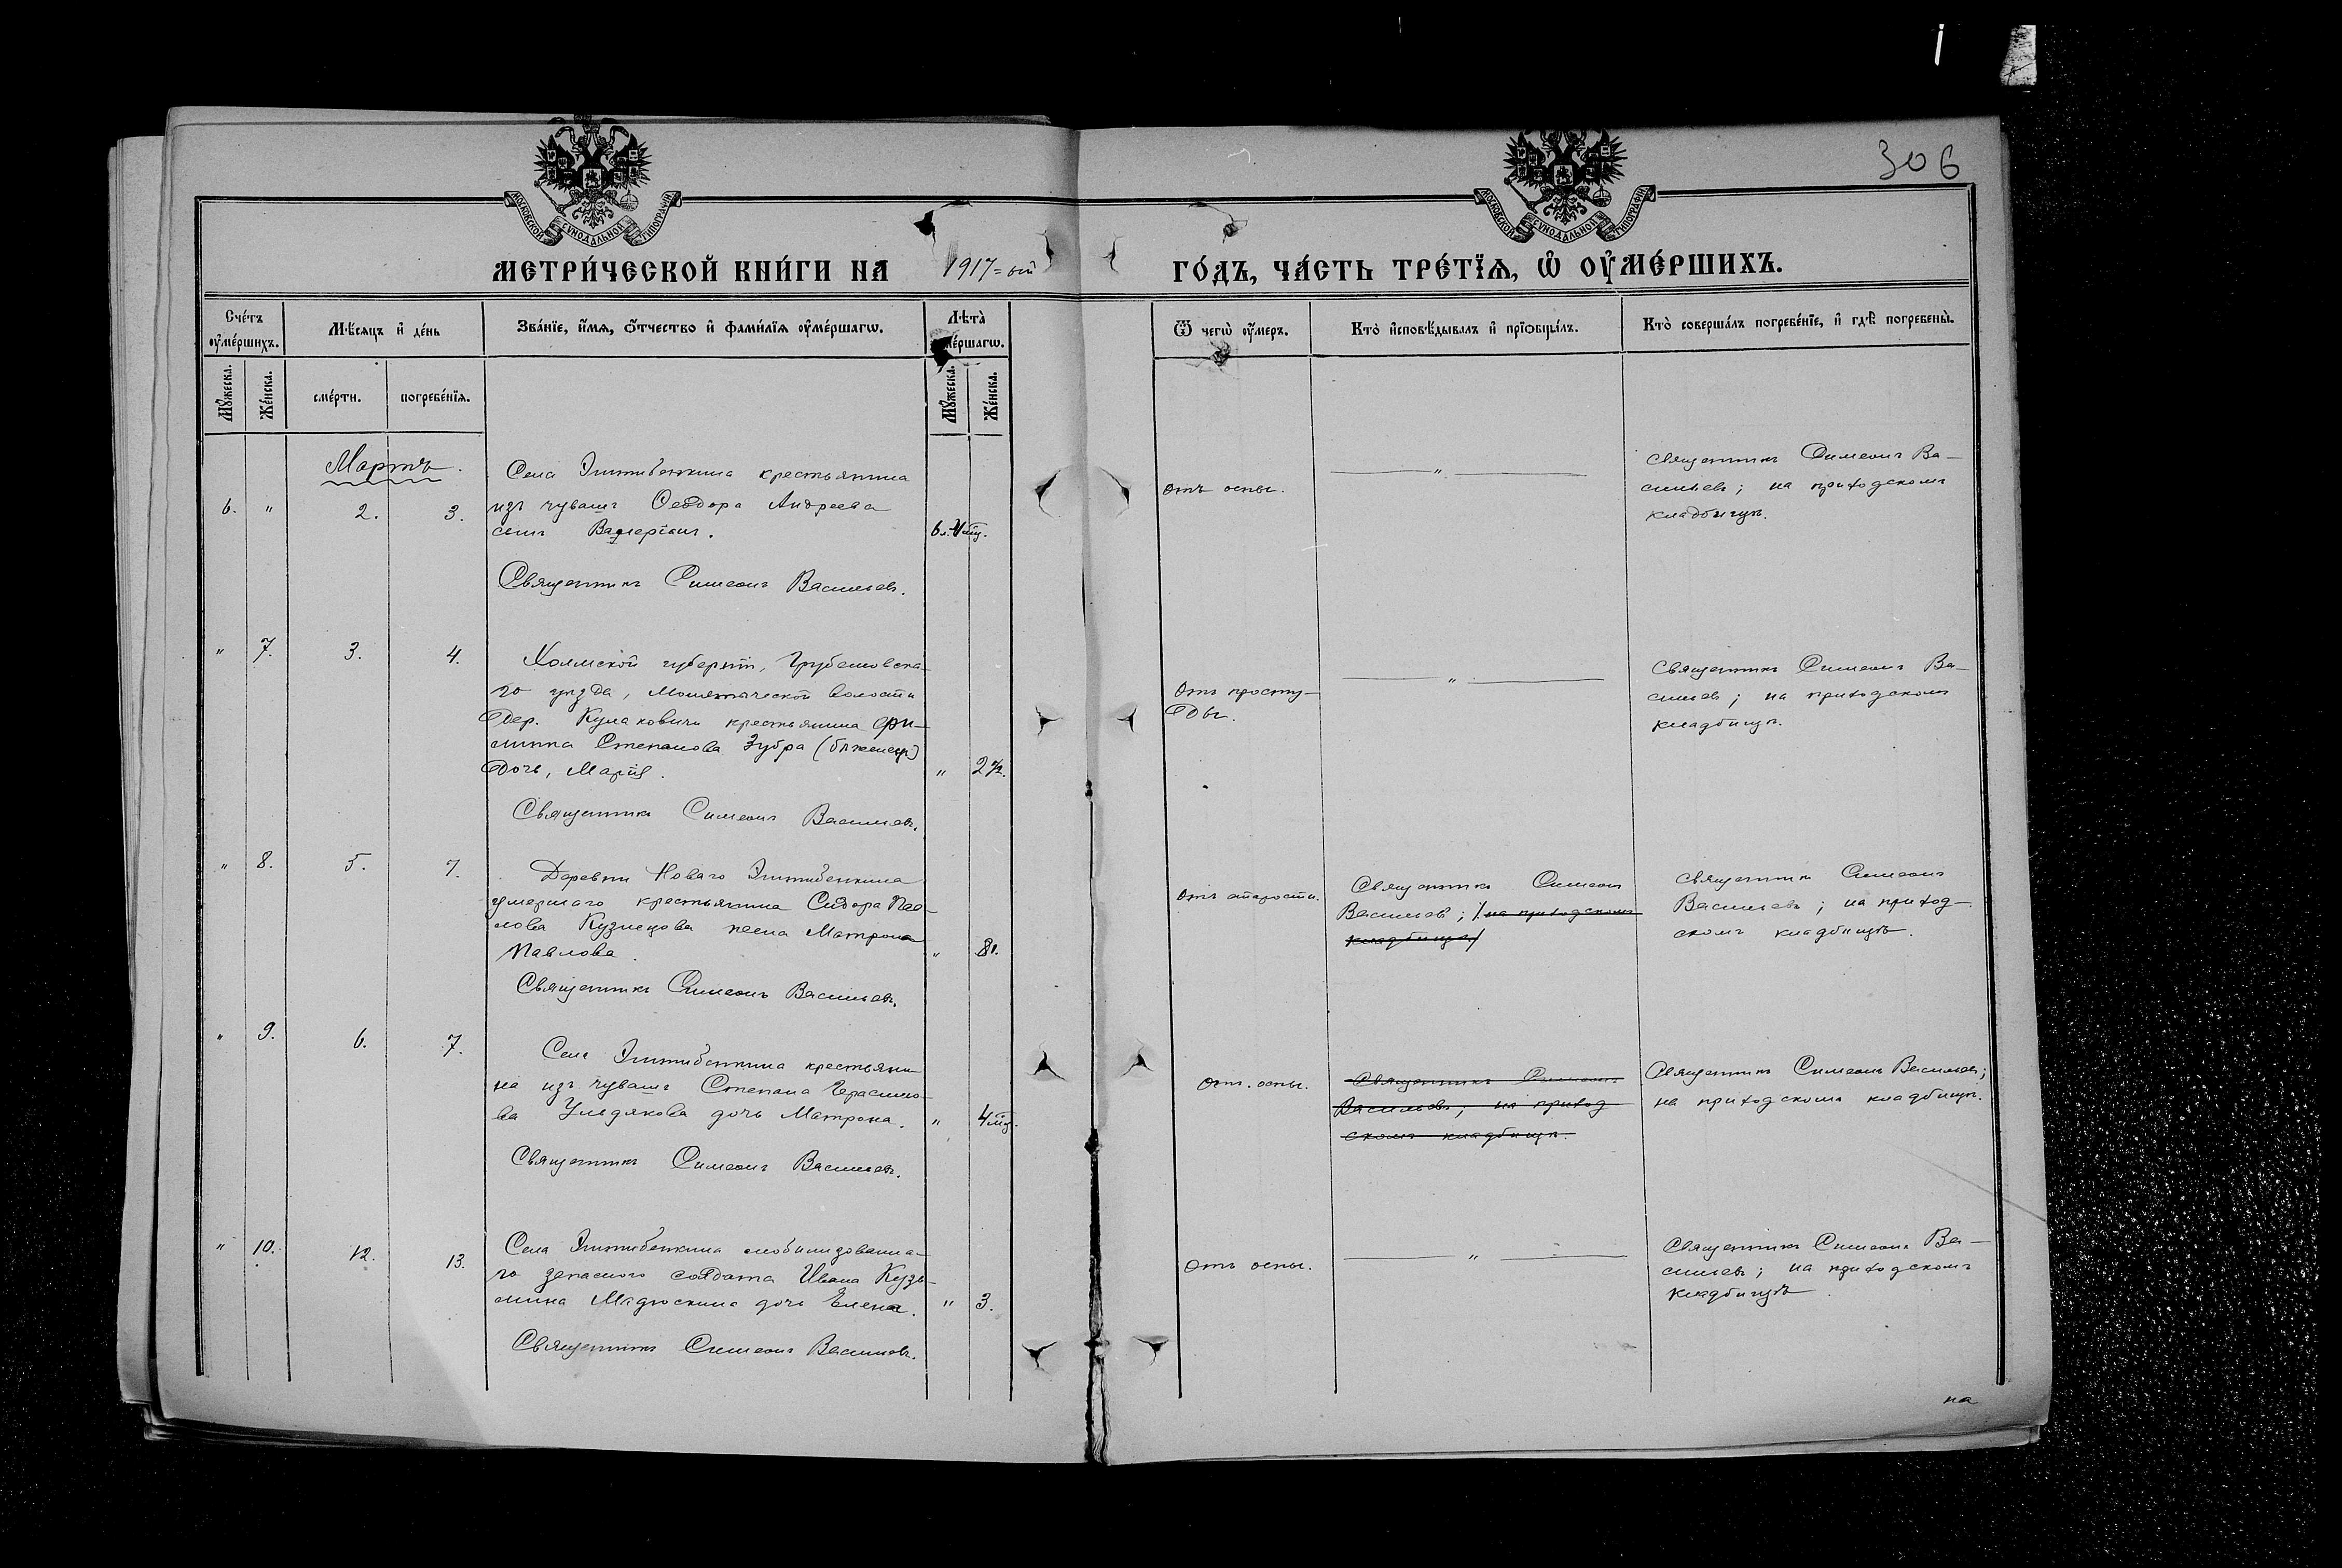 306
МОСКОВСКОЙ СУНОДАЛЬНОЙ ТИПОГРАФІИ
МОСКОВСКОЙ СУНОДАЛЬНОЙ ТИПОГРАФІИ
МЕТРИ́ЧЕСКОЙ КНИ́ГИ НА 1917=ый ГО́ДЪ, ЧА́СТЬ ТРЕ́ТІѦ, Ѡ҆ ОУ҆МЕ́РШИХЪ.
Сче́тъ оу҆ме́ршихъ.
Мѣ́сяцъ и҆ де́нь
Зва́нїе, и҆́мѧ, ѻ҆́тчество и҆ фами́лїѧ оу҆ме́ршагѡ.
Лѣта̀ оу҆ме́ршагѡ.
Ѿ чегѡ̀ оу҆́меръ.
Кто̀ и҆сповѣ́дывалъ и҆ прїѡбща́лъ.
Кто̀ соверша́лъ погребе́нїе, и҆ гдѣ̀ погребены̀.
Мꙋ́жеска.
Же́нска.
сме́рти.
погребе́нїѧ.
Мꙋ́жеска.
Же́нска.
Мартъ.
6. „ 2. 3.
Села Эштебенкина крестьянина
изъ чувашъ Ѳеодора Андреева
сынъ Валеріанъ.
6 л. мѣц.
Священникъ Симеонъ Васильевъ.
отъ оспы.
— „ —
Священникъ Симеонъ Ва-
сильевъ; на приходскомъ
кладбищѣ.
„ 7. 3. 4.
Холмской губерніи, Грубешовска-
го уѣзда, волости
дер. Кулаковичи крестьянина
Степанова Зубра (бѣженецъ)
дочь, Марія.
„ 2 ½.
Священникъ Симеонъ Васильевъ.
Отъ просту-
ды.
— „ —
Священникъ Симеонъ Ва-
сильевъ; на приходскомъ
кладбищѣ.
„ 8. 5. 7.
Деревни Новаго Эштебенкина
умершаго крестьянина Сидора Пав-
лова Кузнецова жена Матрона
Павлова.
„ 81.
Священникъ Симеонъ Васильевъ.
Отъ старости.
Священникъ Симеон
Васильевъ; /на приходскомъ
кладбищѣ/
Священникъ Симеонъ
Васильевъ; на приход-
скомъ кладбищѣ.
„ 9. 6. 7.
Села Эштебенкина крестьяни-
на изъ чувашъ Степана Герасимо-
ва Ульдякова дочь Матрона.
„ 4 мѣц.
Священникъ Симеонъ Васильевъ.
Отъ оспы.
Священникъ Симеонъ
Васильевъ, на приход
скомъ кладбищѣ.
Священникъ Симеонъ Васильевъ;
на приходскомъ кладбищѣ.
„ 10. 12. 13.
Села Эштебенкина мобилизованна-
го запаснаго солдата Ивана Кузь-
мина Мадюскина дочь Елена.
„ 3.
Священникъ Симеонъ Васильевъ.
Отъ оспы.
— „ —
Священникъ Симеонъ Ва-
сильевъ; на приходскомъ
кладбищѣ.
на